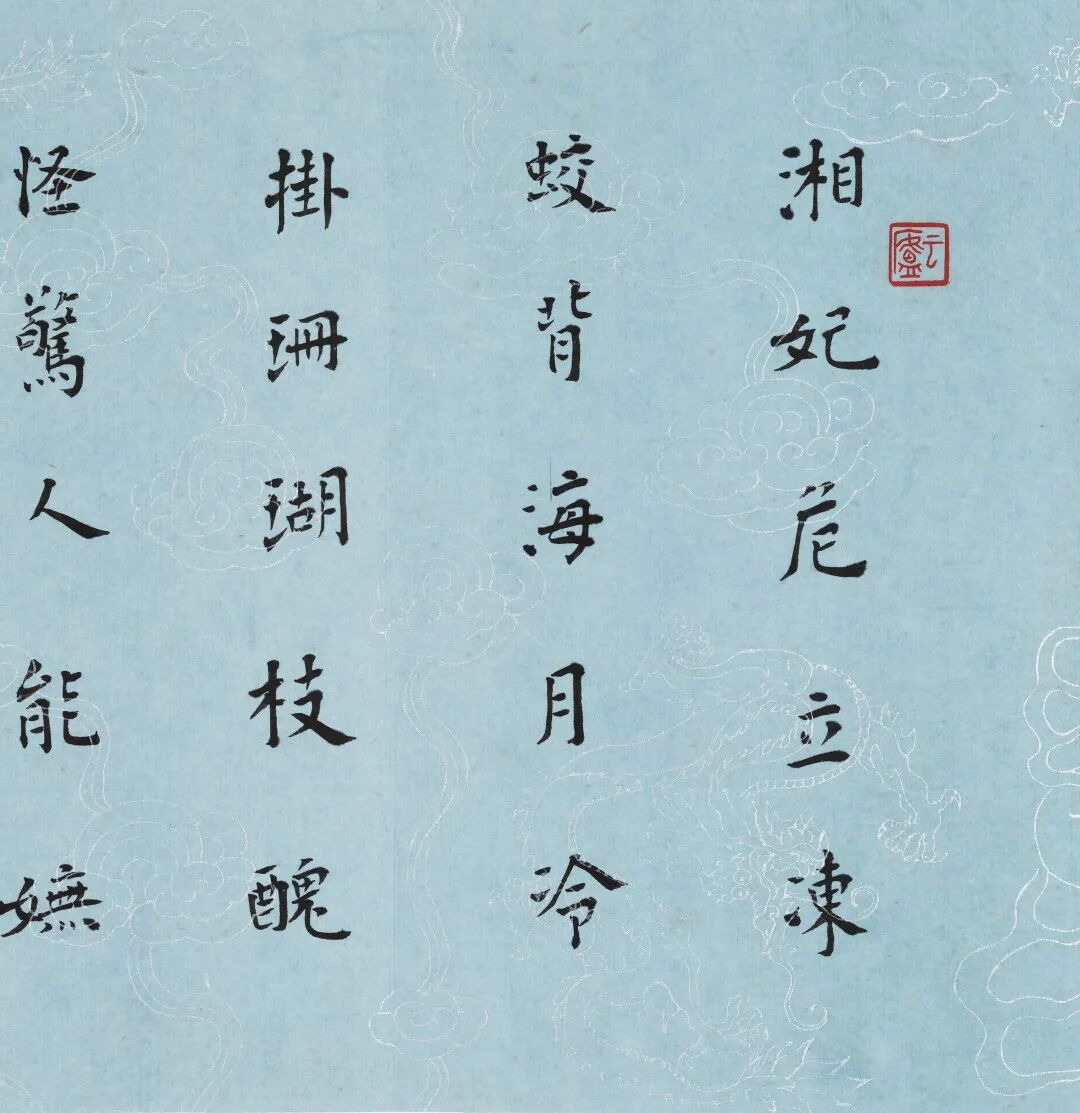 湘妃危立凍
蛟背海月冷
掛珊瑚枝醜
怪驚人能嫵